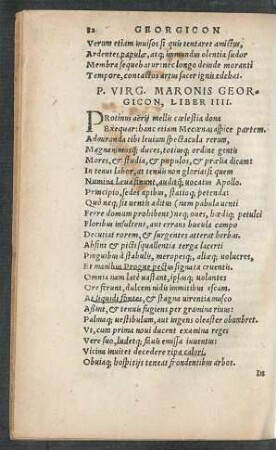 82 GEORGICON
Verum etiam inuisos si quis tentaret amictus,
Ardentes papulæ, atq; immundus olentia sudor
Membra sequebatur: nec longo deinde moranti
Tempore, contactos artus sacer ignis edebat.
P. VIRG. MARONIS GEOR-
GICON, LIBER IIII.
PRotinus aërij mellis cœlestia dona
Exequar: hanc etiam Mecœnas aspice partem.
Admiranda tibi leuium spectacula rerum,
Magnanimosq; duces, totiusq; ordine gentis
Mores, & studia, & populos, & prælia dicam.
In tenui labor, at tenuis non gloria: si quem
Numina læua sinunt, auditq; uocatus Apollo.
Principio, sedes apibus, statioq; petenda:
Quò neq; sit uentis aditus (nam pabula uenti
Ferre domum prohibent) neq; oues, hœdiq; petulci
Floribus insultent, aut errans bucula campo
Decutiat rorem, & surgentes atterat herbas.
Absint & picti squallentia terga lacerti
Pinguibus à stabulis, meropesq;, aliæq; uolucres,
Et manibus Progne pectus signata cruentis.
Omnia nam latè uastant, ipsasq; uolantes
Ore ferunt, dulcem nidis immitibus escam.
At liquidi fontes, & stagna uirentia musco
Adsint, & tenuis fugiens per gramina riuus:
Palmaq; uestibulum, aut ingens oleaster obumbret.
Vt, cum prima noui ducent examina reges
Vere suo, ludetq; fauis emissa iuuentus:
Vicina inuitet decedere ripa calori,
Obuiaq; hospitijs teneat frondentibus arbos.